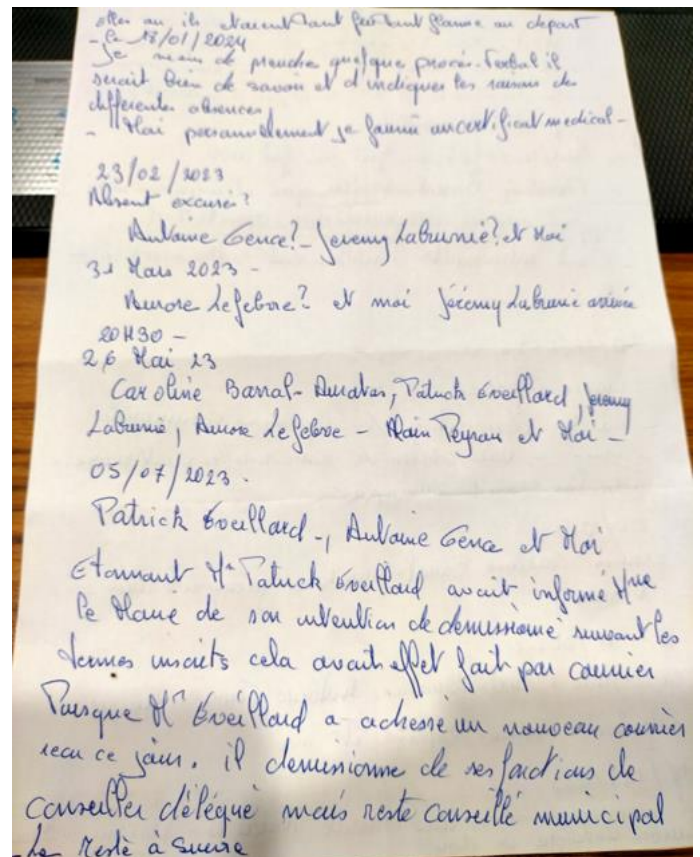 elles ou ils étaient tant flamme au départ
- Le 18/01/2024
Je viens de prendre quelque procès-Verbal il
serait bien de savoir et d'indiquer les raisons des
differentes absences,
- Moi personnellement je fournis un certificat medical -
23/02/2023
Absent excusé?
Antoine Gence? - Jeremy Labrunie? et Moi
31 Mars 2023 -
Aurore Lefebvre? et moi Jérémy Labrunie arrivée
20H30 -
26 Mai 23
Caroline Barral-, Patrick Eveillard, Jeremy
Labrunie, Aurore Lefebvre - Alain Peyran et Moi -
05/07/2023 -
Patrick Eveillard -, Antoine Gence et Moi
Etonnant Mr Patrick Eveillard avait informé Mme
le Maire de son intention de demissionné suivant les
termes inscrits cela avait effet fait par courrier
Puisque Mr Eveillard a adresse un nouveau courrier
recu ce jour. il demissionne de ses fonctions de
conseiller délégué mais reste conseillé municipal
- Le Reste à Suivre